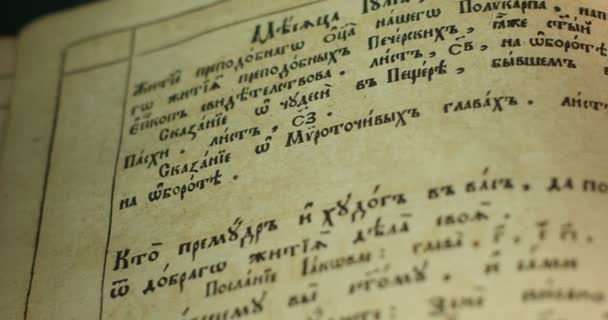 Мц҃а Іѹлі
Житїѐ преподо́бнагѡ Ѻ҆ц҃а на́шегѡ Полука́рпа, нап
гѡ житїѧ̀ преподо́бныхъ Пече́рскихъ, ꙗ҆́же ст҃ы́й
Є҆пⷭ҇копъ свидѣ́телствова. ли́стъ, с҃в, на ѡ҆боро́тѣ
Сказа́нїе ѡ҆ чꙋдесѝ въ Пеще́рѣ, бы́вшемъ
Па́схи. ли́стъ, с҃з.
Сказа́нїе ѡ҆ Мѷрото́чивыхъ глава́хъ. ли́ст
на ѡ҆боро́тѣ.
Кто̀ премꙋ́дръ и҆ хꙋдо́гъ въ ва́съ, да по
ѿ до́брагѡ житїѧ̀ дѣла̀ своѧ̑.
Посла́нїе І҆а́кѡвле: глава̀. г҃. і҆ г҃і.